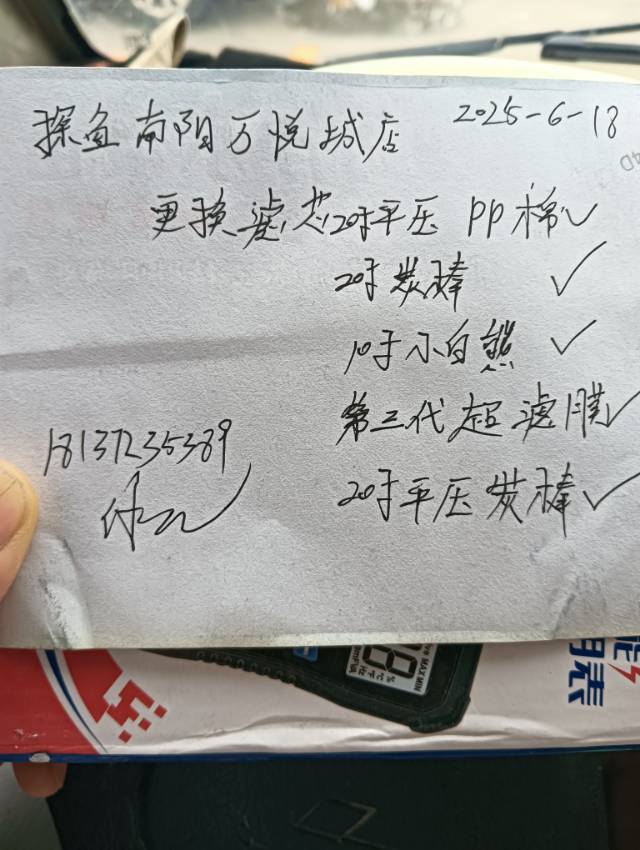 探鱼南阳万悦城店 2025-6-18
更换滤芯20寸平压 PP棉✓
20寸炭棒 ✓
10寸小白熊 ✓
第三代超滤膜✓
18137235389
20寸平压炭棒✓
MAX MIN
表